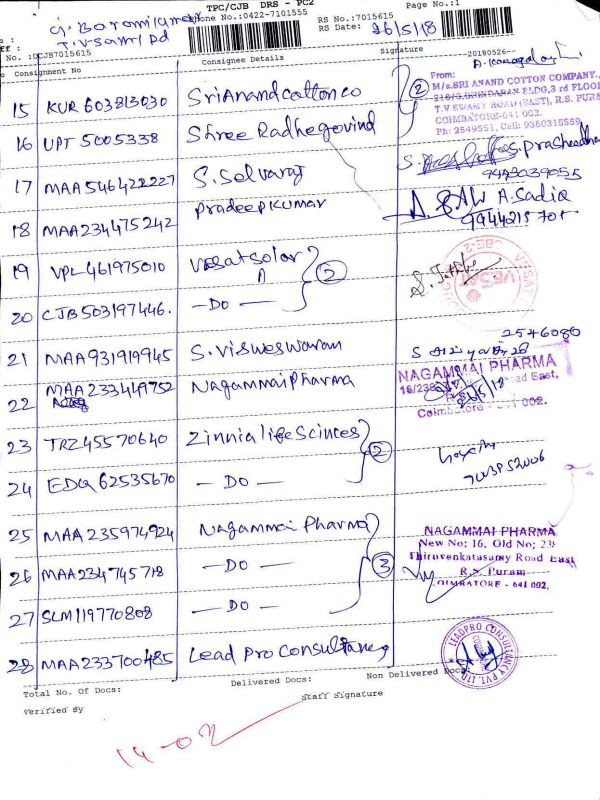 TPC/CJB DRS - PC2
Page No.:1
Phone No.:0422-7101555
RS No.:7015615
T.V Samy Rd
RS Date: 26/5/18
:DCJB7015615
Signature --20180526--
Consignment No
Consignee Details
From:
M/s.SRI ANAND COTTON COMPANY.,
3rd FLOOR
T.V SWAMY ROAD (EAST), R.S. PURA
COIMBATORE-641 002.
Ph: 2549551, Cell: 9360315559
15 KUR 603813030 Sri Anand cotton co
2
16 UPT 5005338 Shree Radhe govind
17 MAA 546422227 S. Selvaraj
18 MAA 234475242 Pradeep Kumar
A. Sadiq
19 VPL 461975010 Vesat solar
2
20 CJB 503197446. - DO -
2546080
21 MAA 931919945 S. Visweswaran
22 MAA 233449752 Nagammai Pharma
NAGAMMAI PHARMA
East,
Coimbatore - 641 002.
26/5/18
23 TRZ 45570640 Zinnia life Scinces
2
24 EDQ 62535670 - DO -
25 MAA 235974924 Nagammai Pharma
NAGAMMAI PHARMA
New No: 16, Old No; 23
Thiruvenkatasamy Road East
R.S. Puram
COIMBATORE - 641 002.
26 MAA 234745718 - DO -
3
27 SLM 119770808 - DO -
28 MAA 233700485 Lead Pro Consultancy
LEADPRO CONSULTANCY PVT. LTD.
Total No. Of Docs:
Delivered Docs:
Non Delivered Docs:
Verified By
Staff Signature
14-02